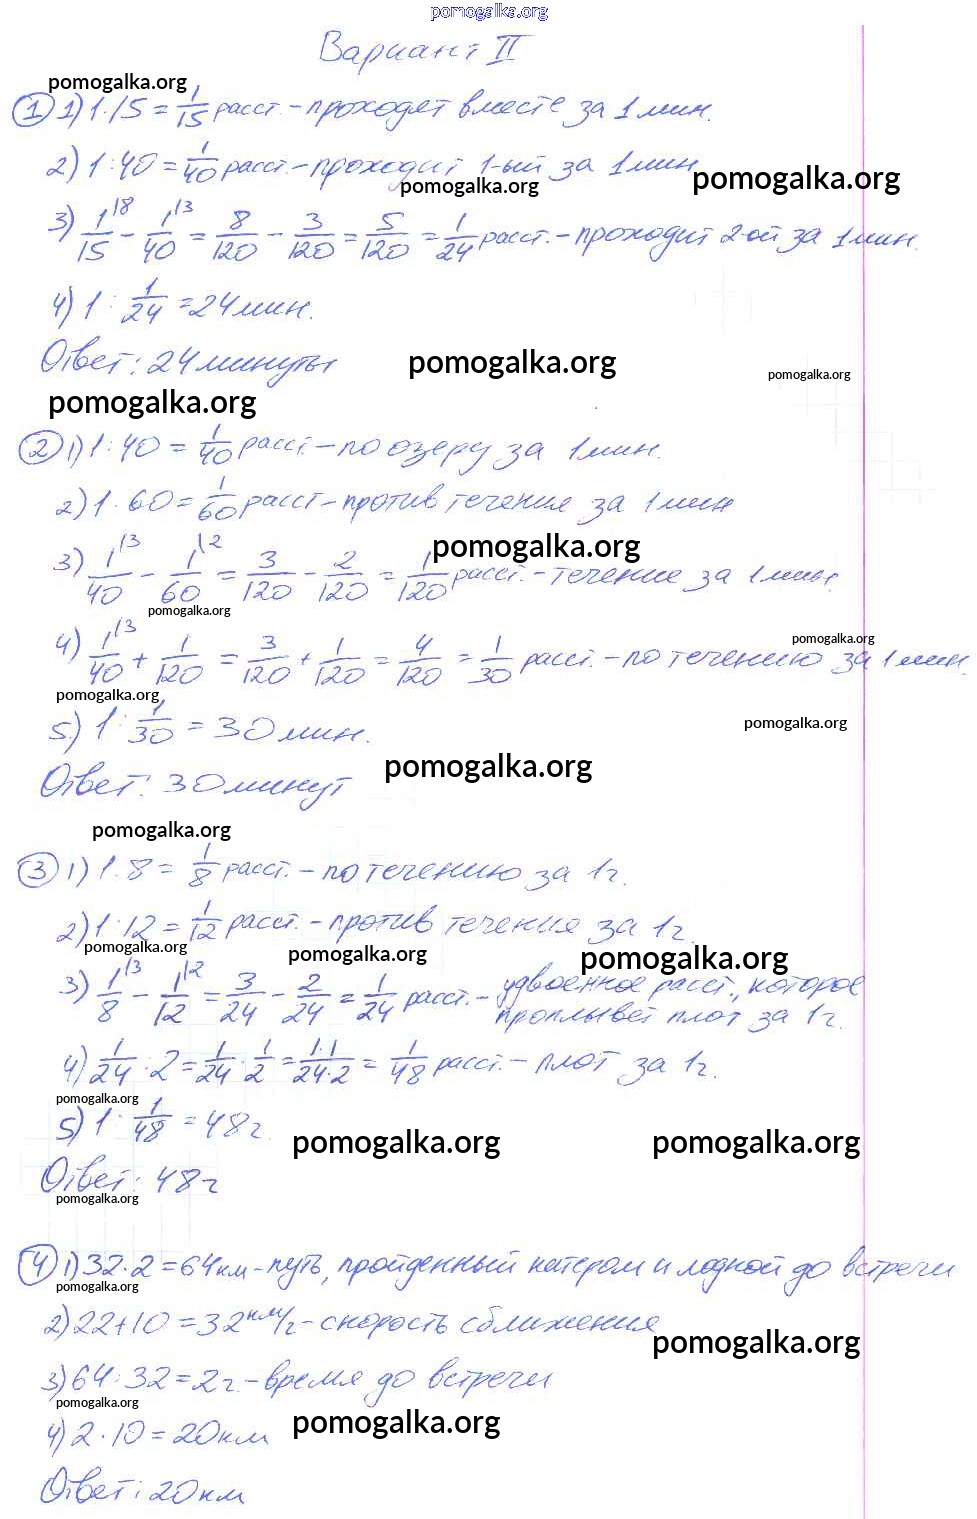 pomogalka.org
Вариант II
pomogalka.org
① 1) 1:15 = 1/15 расст. - проходят вместе за 1 мин.
2) 1:40 = 1/40 расст. - проходит 1-ый за 1 мин
pomogalka.org pomogalka.org
3) 1/15 |8 - 1/40 |3 = 8/120 - 3/120 = 5/120 = 1/24 расст. - проходит 2-ой за 1 мин.
4) 1 : 1/24 = 24 мин.
Ответ: 24 минуты
pomogalka.org
pomogalka.org
pomogalka.org
② 1) 1:40 = 1/40 расст - по озеру за 1 мин.
2) 1:60 = 1/60 расст - против течения за 1 мин
pomogalka.org
3) 1/40 |3 - 1/60 |2 = 3/120 - 2/120 = 1/120 расст. - течение за 1 мин.
pomogalka.org
pomogalka.org
4) 1/40 |3 + 1/120 = 3/120 + 1/120 = 4/120 = 1/30 расст. - по течению за 1 мин.
pomogalka.org
pomogalka.org
5) 1 : 1/30 = 30 мин.
pomogalka.org
Ответ: 30 минут
pomogalka.org
③ 1) 1:8 = 1/8 расст. - по течению за 1 г.
2) 1:12 = 1/12 расст. - против течения за 1 г.
pomogalka.org pomogalka.org pomogalka.org
3) 1/8 |3 - 1/12 |2 = 3/24 - 2/24 = 1/24 расст. - удвоенное расст., которое
проплывёт плот за 1 г.
4) 1/24 : 2 = 1/24 · 1/2 = 1·1/24·2 = 1/48 расст. - плот за 1 г.
pomogalka.org
5) 1 : 1/48 = 48 г.
pomogalka.org pomogalka.org
Ответ: 48 г
pomogalka.org
④ 1) 32·2 = 64 км - путь, пройденный катером и лодкой до встречи
pomogalka.org
2) 22+10 = 32 км/г - скорость сближения
pomogalka.org
3) 64:32 = 2 г. - время до встречи
pomogalka.org
pomogalka.org
4) 2·10 = 20 км
Ответ: 20 км